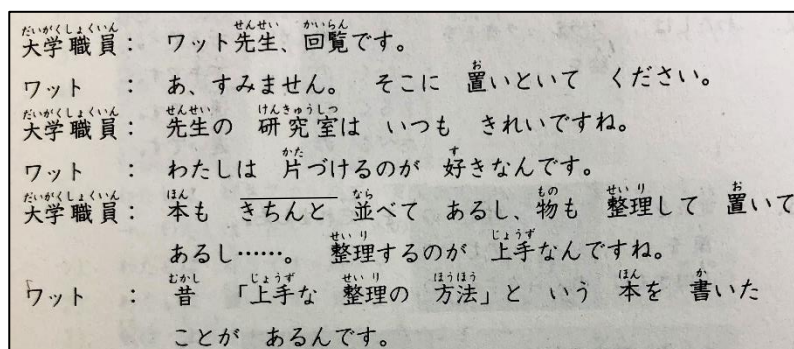 大学職員： ワット先生、回覧です。
ワット ： あ、すみません。 そこに 置いといて ください。
大学職員： 先生の 研究室は いつも きれいですね。
ワット ： わたしは 片づけるのが 好きなんです。
大学職員： 本も きちんと 並べて あるし、物も 整理して 置いて
あるし……。 整理するのが 上手なんですね。
ワット ： 昔 「上手な 整理の 方法」と いう 本を 書いた
ことが あるんです。